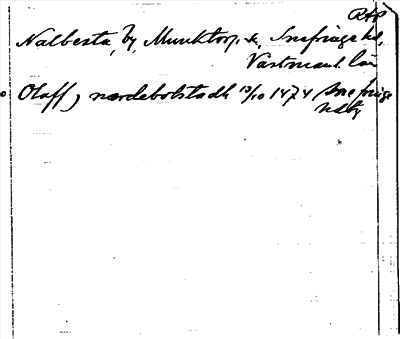 RAP
Nalbesta, by, Munktorp sn, Snefringe hd,
Västmanl. län
Olaff j nærdebolstadh 13/10 1474 Snefringe
hdby